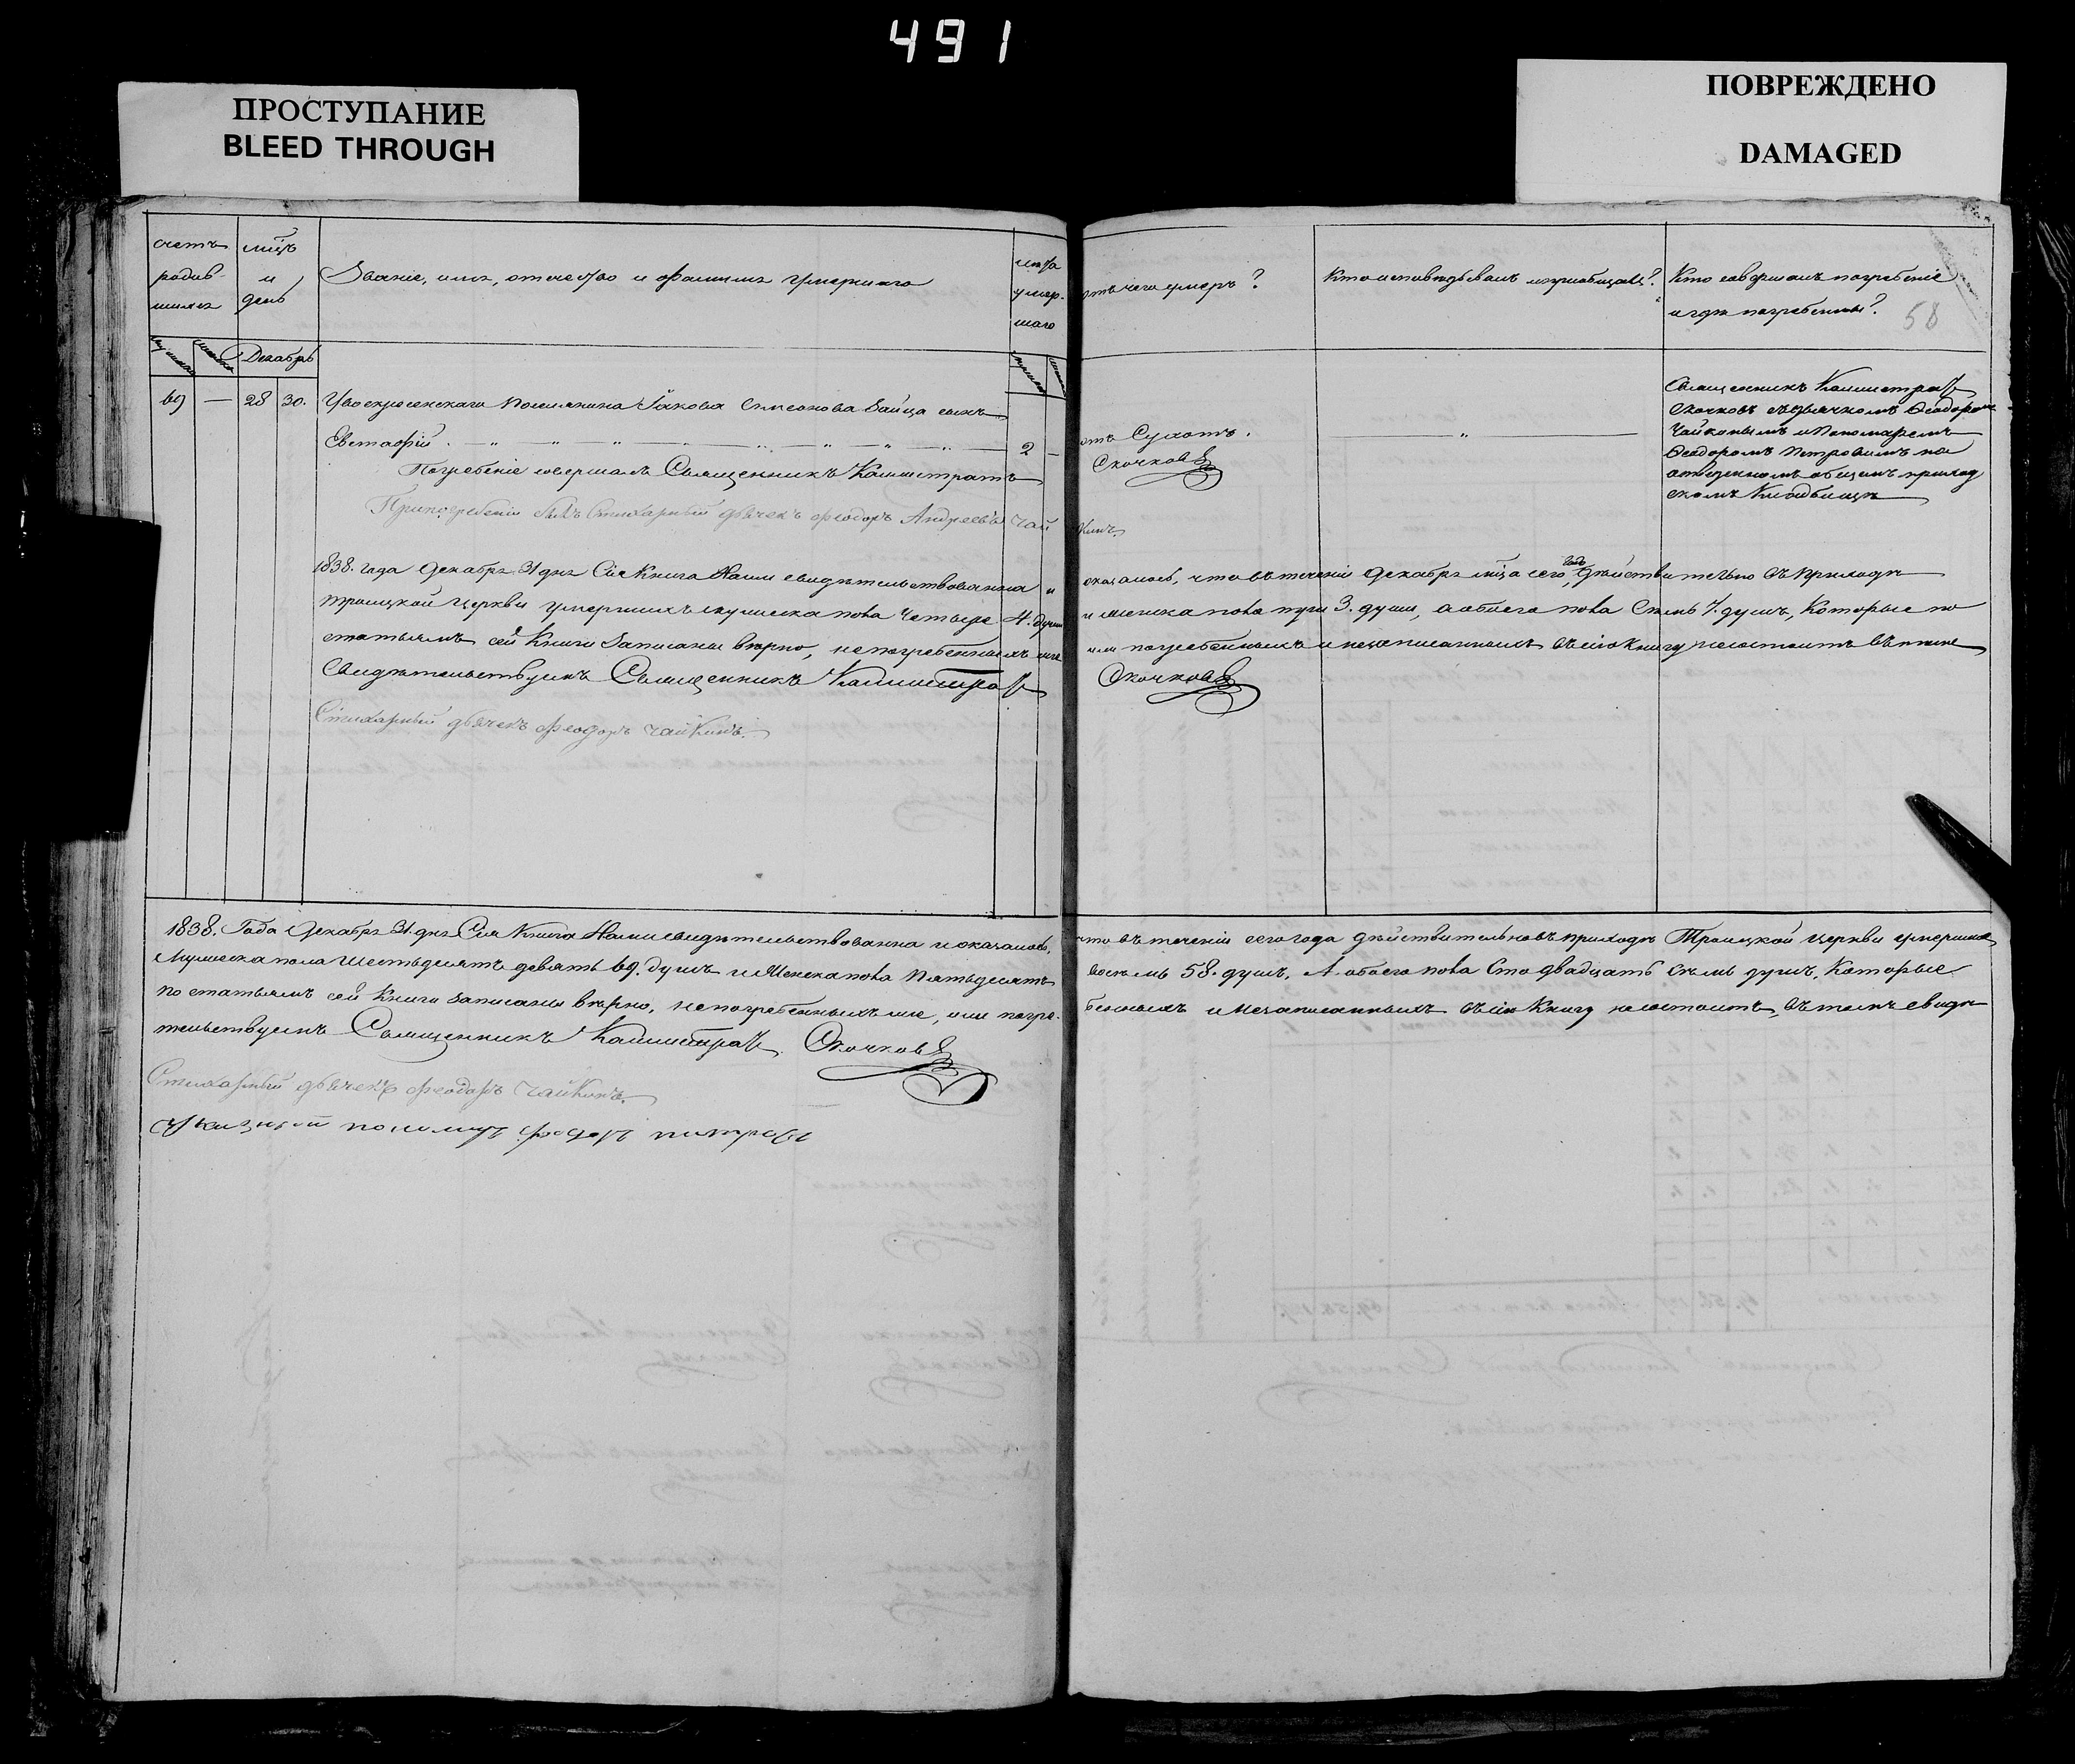 491
ПРОСТУПАНИЕ
BLEED THROUGH
ПОВРЕЖДЕНО
DAMAGED
счетъ
родив-
шихъ
мѣц
и
день
Званіе, имя, отчество и фамилія умершаго
лѣта
умер-
шаго
отъ чего умеръ?
Кто исповѣдывалъ и пріобщалъ?
Кто совершалъ погребеніе
и гдѣ погребены?
58
Декабрь
69 — 28 30. Увоскресенскаго Поселянина Іакова Симеонова Зайца сынъ
Евстафій 2 —
отъ Сухотъ.
Погребеніе совершалъ Священникъ Каллистратъ
Скочковъ
Припогребеніи былъ Стихарный дьячекъ Феодоръ Андреевъ Чай
кинъ.
Священникъ Каллистратъ
Скочковъ съ дьячкомъ Феодоромъ
Чайкинымъ и Пономаремъ
Феодоромъ Петровымъ на
отведенномъ общемъ приход
скомъ Кладбищѣ
1838. года Декабря 31 дня Сія Книга Нами свидѣтельствованна и оказалось, что въ теченіи Декабря мѣца сего года дѣйствительно въ Приходѣ
Троицкой Церкви умершихъ мужеска пола Четыре 4. души и женска пола три 3. души, а обоего пола Семь 7. душъ, Которые по
статьямъ сей Книги Записаны вѣрно, непогребенныхъ же или погребенныхъ и незаписанныхъ въ сію Книгу несостоитъ въ томъ
Свидѣтельствуемъ Священникъ Каллистратъ Скочковъ
Стихарный дьячекъ Феодоръ Чайкинъ.
1838. Года Декабря 31. дня Сія Книга Нами свидѣтельствованна и оказалось, что въ теченіи сего года дѣйствительно въ приходѣ Троицкой Церкви умершихъ
Мужеска пола Шестьдесятъ девять 69. душъ и Женска пола Пятьдесятъ восемь 58. душъ, А обоего пола Сто двадцать Семь душъ, Которые
По статьямъ сей Книги записаны вѣрно, непогребенныхъ же, или погре-бенныхъ и Незаписанныхъ въ сію Книгу несостоитъ, въ томъ свидѣ-
тельствуемъ Священникъ Каллистратъ Скочковъ
Стихарный дьячекъ Феодоръ Чайкинъ.
Указный пономарь Феодоръ Петровъ